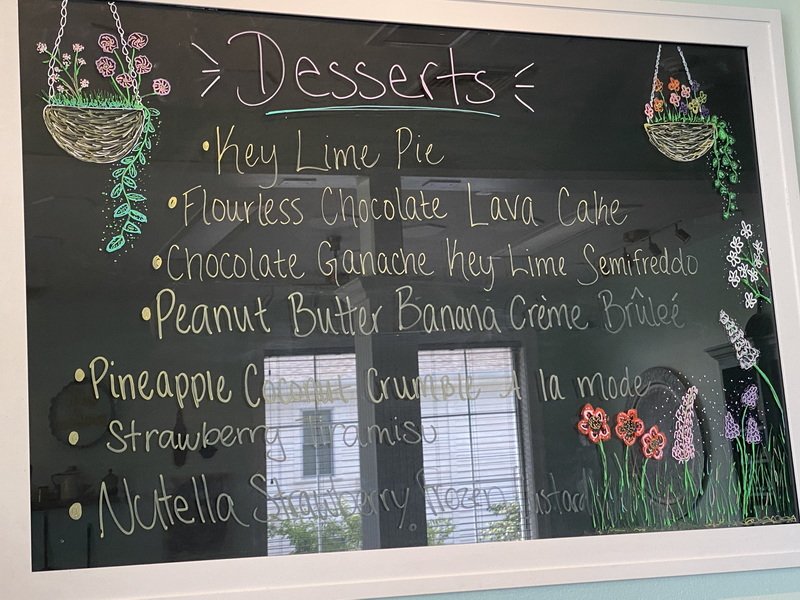 Desserts
• Key Lime Pie
• Flourless Chocolate Lava Cake
• Chocolate Ganache Key Lime Semifreddo
• Peanut Butter Banana Crème Brûleé
• Pineapple Coconut Crumble A la mode
• Strawberry Tiramisu
• Nutella Strawberry Frozen Custard